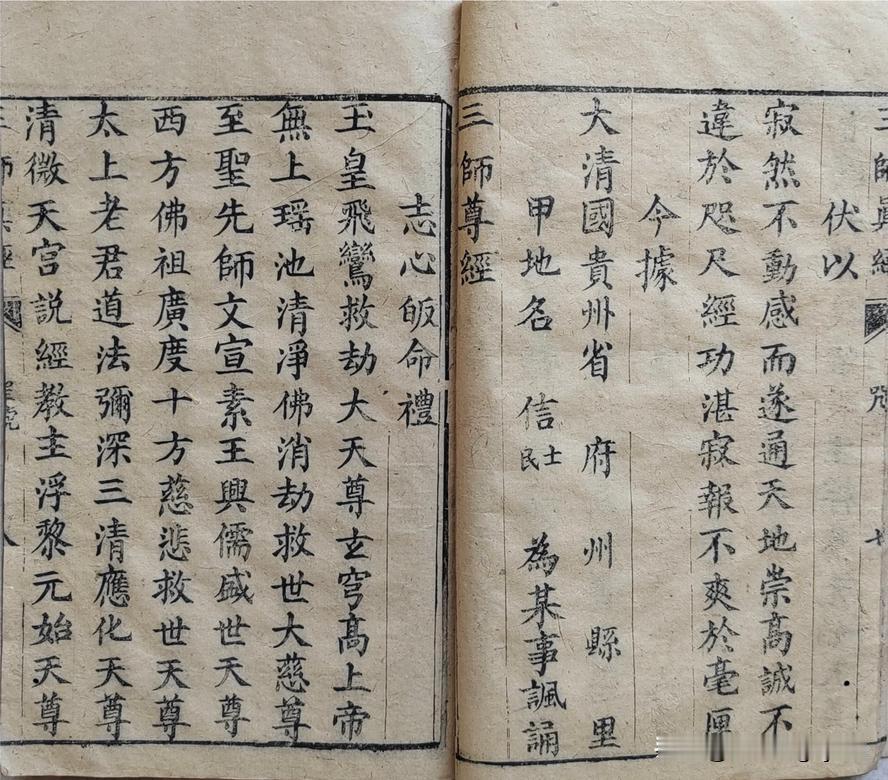 三師眞經
咒
七
伏以
寂然不動感而遂通天地崇高誠不
違於咫尺經功湛寂報不爽於毫厘
今據
大清國貴州省 府 州 縣 里
甲地名 信士民 為某事諷誦
三師尊經
志心皈命禮
玉皇飛鸞救劫大天尊玄穹高上帝
無上瑶池清凈佛消劫救世大慈尊
至聖先師文宣素王興儒盛世天尊
西方佛祖廣度十方慈悲救世天尊
太上老君道法彌深三清應化天尊
清微天宫説經教主浮黎元始天尊
三師眞經
聖號
八